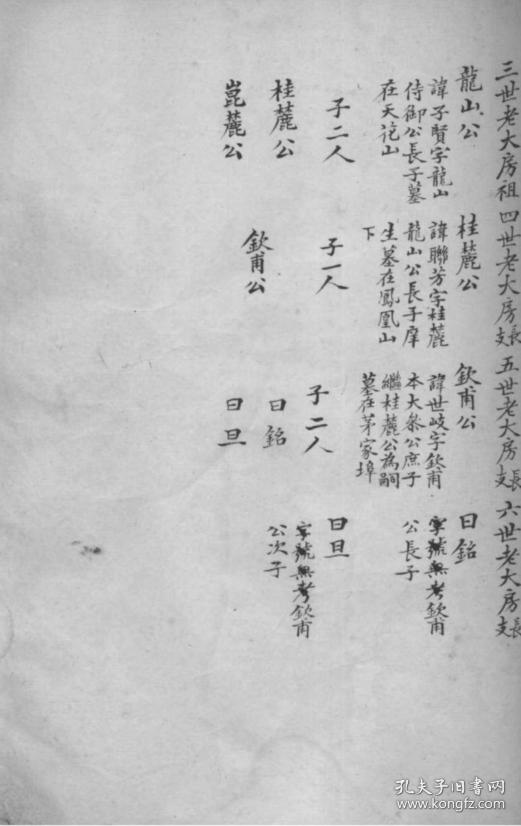 三世老大房祖
龍山公
諱子賢字龍山
侍御公長子墓
在天
山
子二人
桂麓公
崑麓公
四世老大房長支
桂麓公
諱聯芳字桂麓
龍山公長子庠
生墓在鳳凰山
下
子一人
欽甫公
五世老大房長支
欽甫公
諱世岐字欽甫
本大叅公庶子
繼桂麓公為嗣
墓在茅家埠
子二人
曰銘
曰旦
六世老大房長支
曰銘
字號無考欽甫
公長子
曰旦
字號無考欽甫
公次子
孔夫子旧書网
kongfz.com